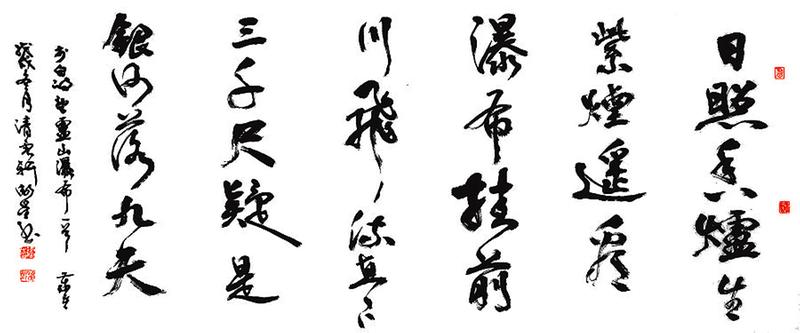 日照香爐生
紫煙遥看
瀑布挂前
川飛流直下
三千尺疑是
銀河落九天
李白詩望廬山瀑布一首
冬月清